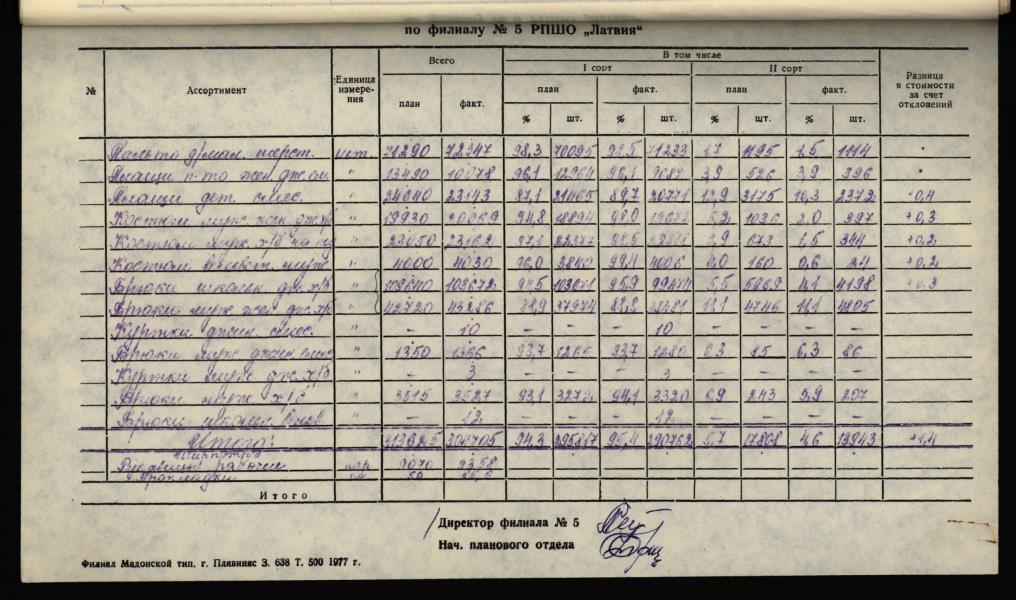 по филиалу № 5 РПШО „Латвия“
№ Ассортимент Единица измере- ния Всего В том числе Разница в стоимости за счет отклонений
I сорт II сорт
план факт. план факт. план факт.
% шт. % шт. % шт. % шт.
Пальто шерст. шт. 71290 72347 98,3 70095 98,5 71233 1,7 1195 1,5 1114
Плащи п-то жен. " 13490 10078 96,1 12964 96,1 9682 3,9 526 3,9 396
Плащи дет. смес. " 24640 23143 87,1 21465 89,7 20771 12,9 3175 10,3 2372 +0,4
Костюм муж. жен. " 19930 20069 94,8 18894 98,0 19672 5,2 1036 2,0 397 +0,3
Костюм муж. х/б " 23050 23162 97,1 22377 98,5 2,9 673 1,5 344 +0,2
Костюм муж. " 4000 4030 96,0 3840 99,4 4006 4,0 160 0,6 24 +0,2
Брюки х/б " 103672 94,5 95,9 99474 5,5 5969 4,1 4198 +0,3
Брюки муж. жен. " 42720 43286 88,9 37974 88,8 38481 11,1 4746 11,1 4805
Куртки джин. смес. " – 10 – – – 10 – – – –
Брюки муж. джин. " 1350 1366 93,7 1265 93,7 1280 6,3 85 6,3 86
Куртки муж. дж. х/б " – 3 – – – 3 – – – –
Брюки муж. х/б " 3515 3527 93,1 3272 94,1 3320 6,9 243 5,9 207
Брюки " – 12 – – – 12 – – – –
Итого: 313625 304705 94,3 295817 95,4 290762 5,7 17808 4,6 13943 +1,4
Ширпотреб
Рукавицы рабочие пар 9070 9358
Прокладки 50
Итого
Директор филиала № 5
Нач. планового отдела
Филиал Мадонской тип. г. Плявиняс З. 638 Т. 500 1977 г.